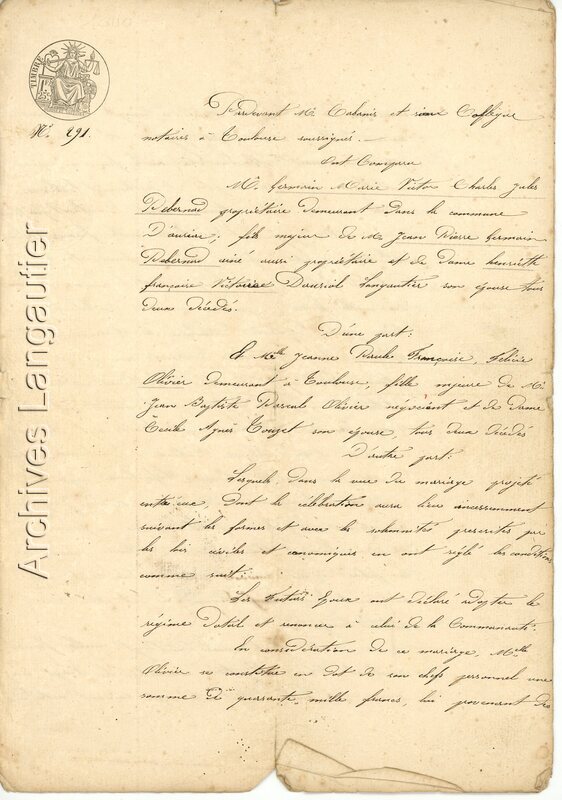 TIMBRE
N° 291.
Pardevant Me Cabanis et son Collègue
notaires à Toulouse soussignés.
Ont Comparu
M. Germain Marie Victor Charles Jules
Rebernad propriétaire demeurant dans la commune
D'auriac; fils majeur de M. Jean Pierre Germain
Rebernad ainé aussi propriétaire et de Dame henriette
françoise Victoire Langautier son épouse tous
deux décédés.
D'une part:
Et Mlle Jeanne Paule Françoise, Félicie
Olivier demeurant à Toulouse, fille majeure de M.
Jean Baptiste Pascal Olivier négociant et de Dame
Cécile Agnès Touzet son épouse, tous deux décédés
D'autre part:
Lesquels, dans la vue du mariage projeté
entre eux dont la célébration aura lieu incessamment
suivant les formes et avec les solemnités prescrites par
les lois civiles et canoniques en ont réglé les conditions
comme suit:
Les futurs Epoux ont déclaré adopter le
régime Dotal et renoncer à celui de la Communauté.
En considération de ce mariage, Mlle
Olivier se constitue en dot de son chef personnel une
somme de quarante mille francs, lui provenant des
Archives Langautier